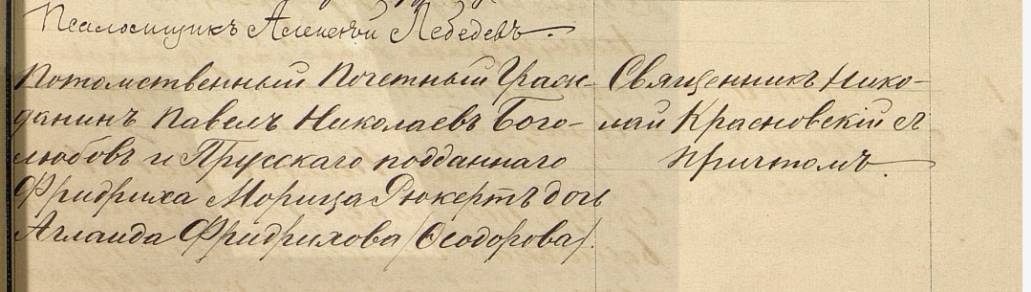 Псаломщикъ Алексѣй Лебедевъ.
Потомственный Почетный Граж-
данинъ Павелъ Николаевъ Бого-
любовъ и Прусскаго подданнаго
Фридриха Морица Рюкертъ дочь
Аглаида Фридрихова /Ѳеодорова/.
Священникъ Нико-
лай Красновскій съ
причтомъ.